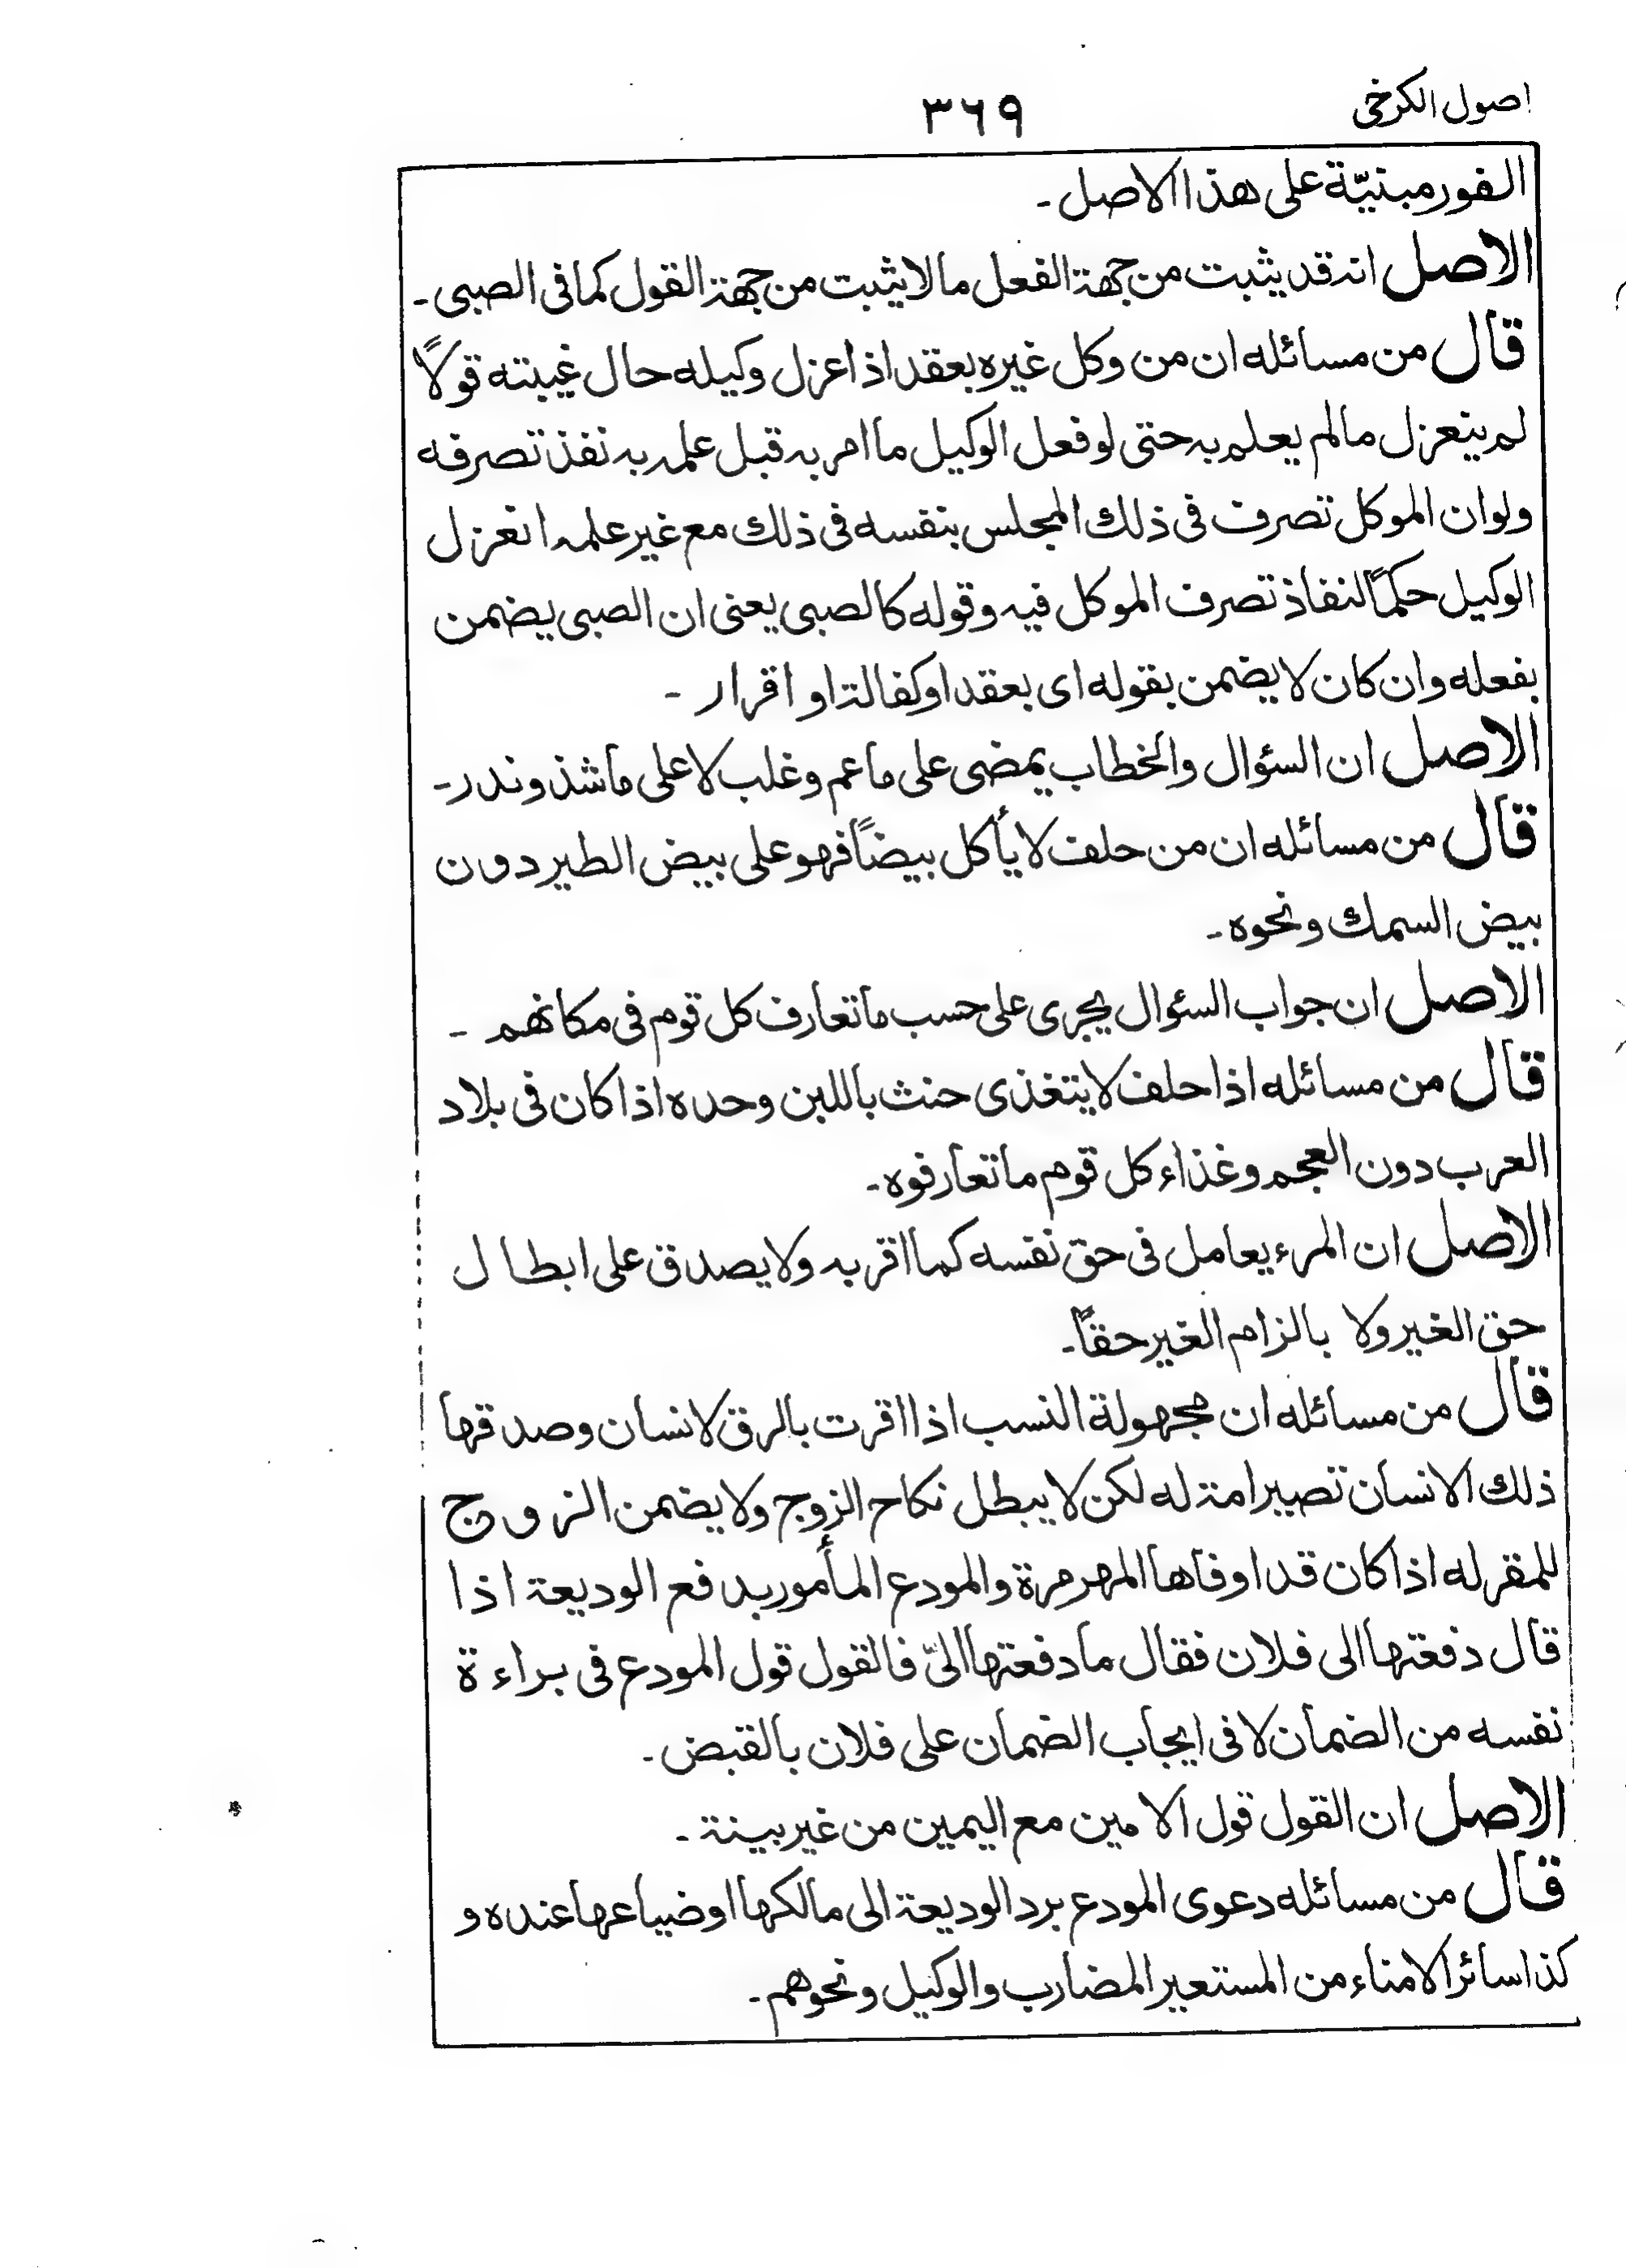 اصول الكرخی
٣٦٩
الفور مبنيّة على هذا الاصل۔
الاصل انه قد يثبت من جهة الفعل ما لا يثبت من جهة القول كما فى الصبى۔
قال من مسائله ان من وكل غيره بعقد اذا عزل وكيله حال غيبته قولًا
لم ينعزل ما لم يعلم به حتى لو فعل الوكيل ما امر به قبل علمه به نفذ تصرفه
ولو ان الموكل تصرف فى ذلك المجلس بنفسه فى ذلك مع غير علمه انعزل
الوكيل حكمًا لنفاذ تصرف الموكل فيه وقوله كالصبى يعنى ان الصبى يضمن
بفعله وان كان لا يضمن بقوله اى بعقد او كفالة او اقرار ۔
الاصل ان السؤال والخطاب يمضى على ما عم وغلب لا على ما شذ وندر۔
قال من مسائله ان من حلف لا يأكل بيضًا فهو على بيض الطير دون
بيض السمك ونحوه۔
الاصل ان جواب السؤال يجرى على حسب ما تعارف كل قوم فى مكانهم ۔
قال من مسائله اذا حلف لا يتغذى حنث باللبن وحده اذا كان فى بلاد
العرب دون العجم وغذاء كل قوم ما تعارفوه۔
الاصل ان المرء يعامل فى حق نفسه كما اقر به ولا يصدق على ابطال
حق الغير ولا بالزام الغير حقًا۔
قال من مسائله ان مجهولة النسب اذا اقرت بالرق لانسان وصدقها
ذلك الانسان تصير امة له لكن لا يبطل نكاح الزوج ولا يضمن الزوج
للمقر له اذا كان قد اوفاها المهر مرة والمودع المأمور بدفع الوديعة اذا
قال دفعتها الى فلان فقال ما دفعتها الىّ فالقول قول المودع فى براءة
نفسه من الضمان لا فى ايجاب الضمان على فلان بالقبض۔
الاصل ان القول قول الامين مع اليمين من غير بينة ۔
قال من مسائله دعوى المودع برد الوديعة الى مالكها او ضياعها عنده و
كذا سائر الامناء من المستعير المضارب والوكيل ونحوهم۔